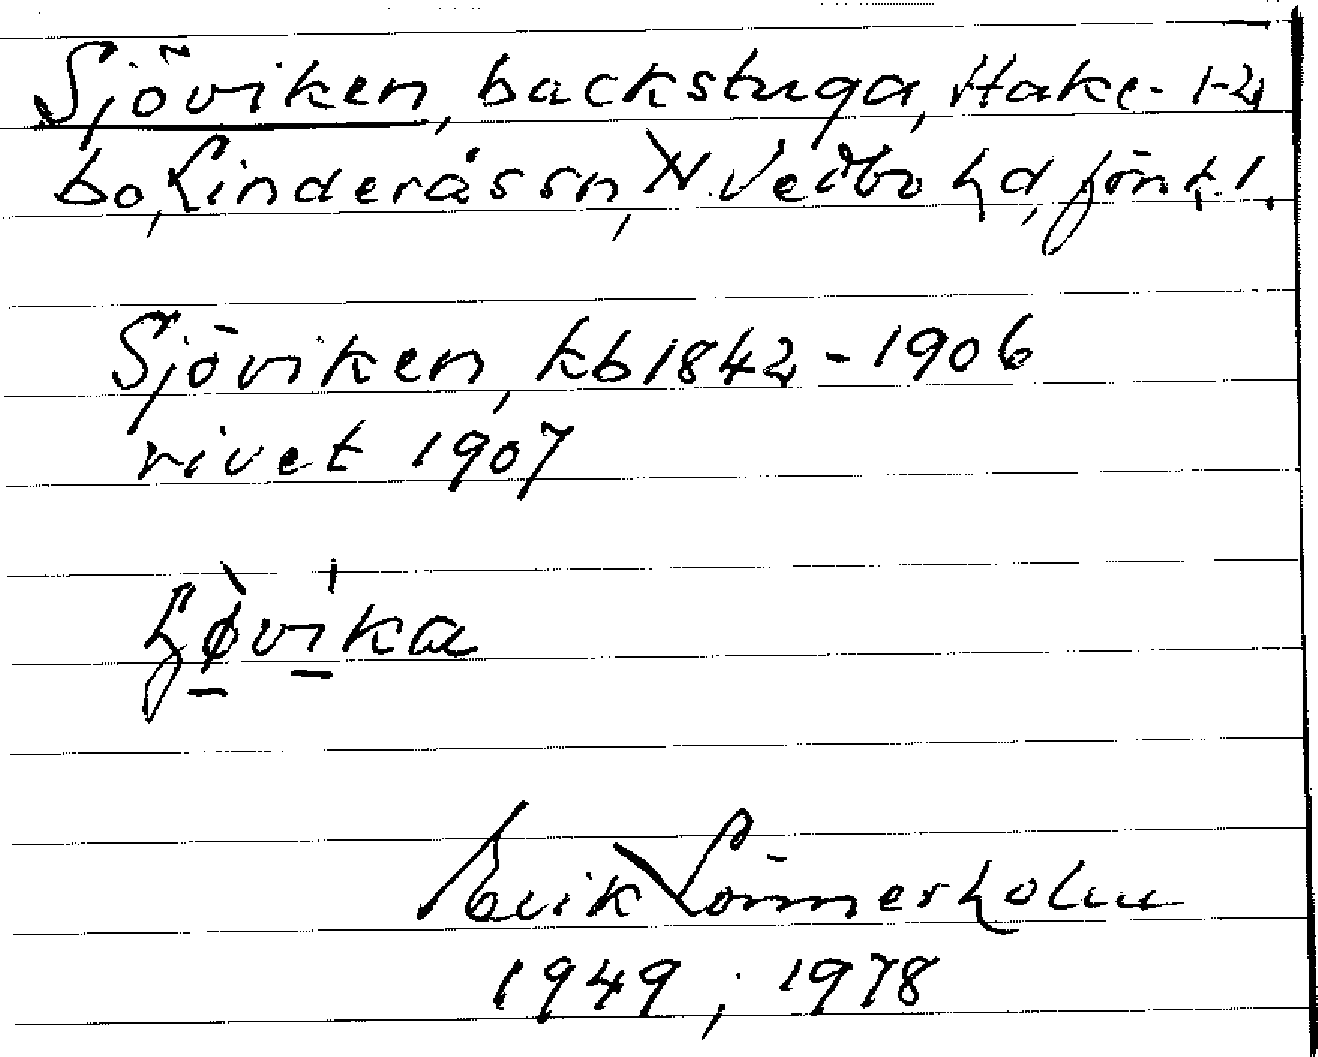 Sjöviken, backstuga, Hake- 1-2
bo, Linderås sn, N. Vedbo hd, Jönk. l.
Sjöviken, kb 1842 - 1906
rivet 1907
Erik Lönnerholm
1949 ; 1978